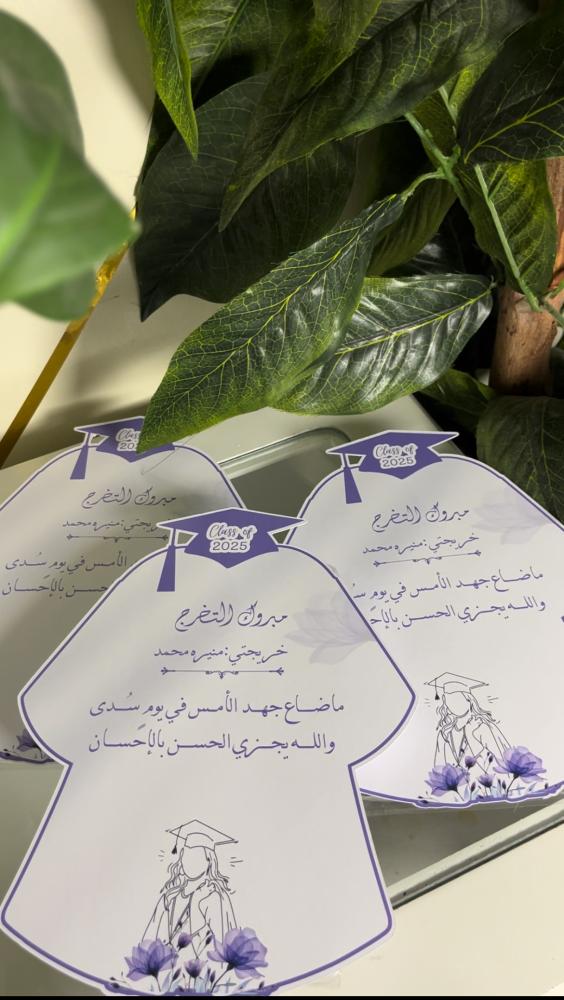 Class of
2025
مبروك التخرج
خريجتي:منيره محمد
ماضاع جهد الأمس في يوم سُدى
والله يجزي الحسن بالإحسان
Class of
2025
مبروك التخرج
خريجتي:منيره محمد
ماضاع جهد الأمس في يوم
والله يجزي الحسن
مبروك التخرج
منيره محمد
الأمس في يوم سُدى
بالإحسان